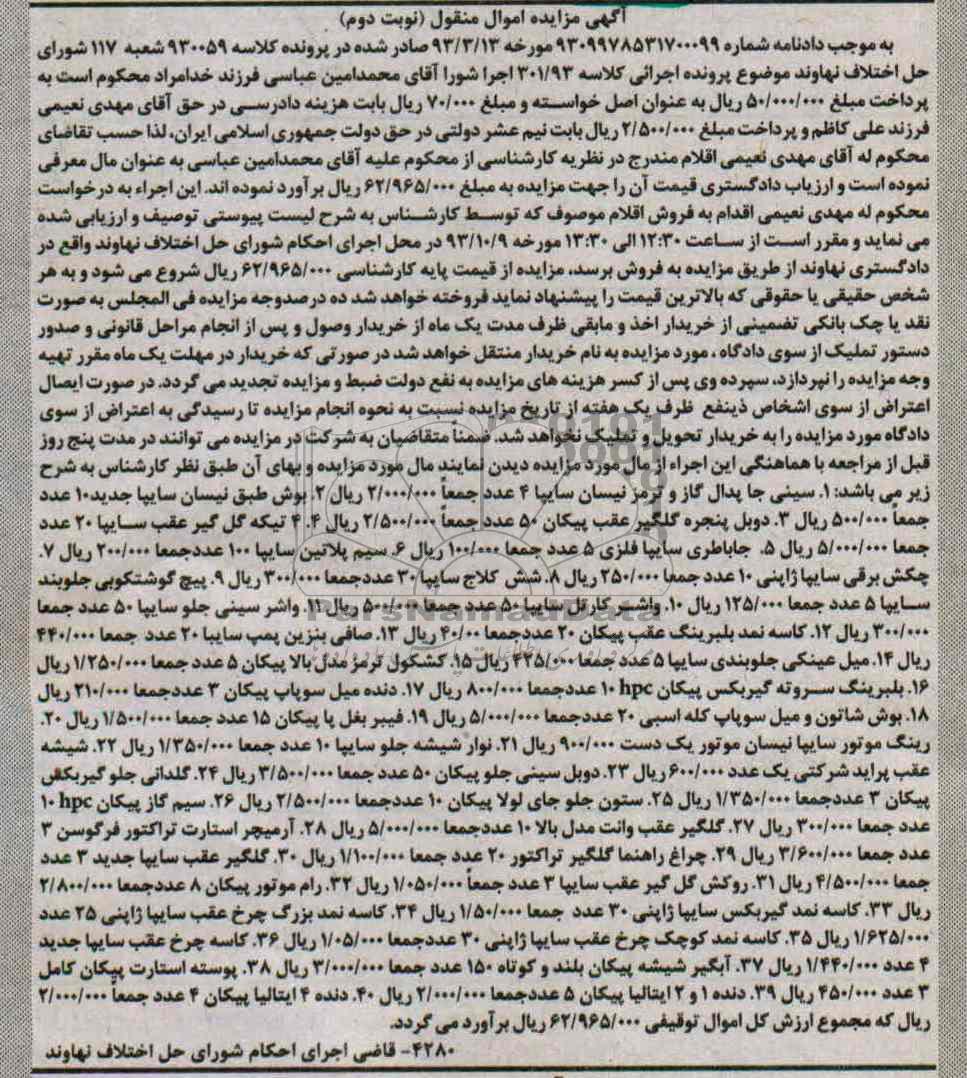 آگهی مزایده اموال منقول (نوبت دوم)
به موجب دادنامه شماره ۹۳۰۹۹۷۸۵۳۱۷۰۰۰۹۹ مورخه ۹۳/۳/۱۳ صادر شده در پرونده کلاسه ۹۳۰۰۵۹ شعبه ۱۱۷ شورای
حل اختلاف نهاوند موضوع پرونده اجرائی کلاسه ۳۰۱/۹۳ اجرا شورا آقای محمدامین عباسی فرزند خدامراد محکوم است به
پرداخت مبلغ ۵۰/۰۰۰/۰۰۰ ریال به عنوان اصل خواسته و مبلغ ۷۰/۰۰۰ ریال بابت هزینه دادرسی در حق آقای مهدی نعیمی
فرزند علی کاظم و پرداخت مبلغ ۲/۵۰۰/۰۰۰ ریال بابت نیم عشر دولتی در حق دولت جمهوری اسلامی ایران، لذا حسب تقاضای
محکوم له آقای مهدی نعیمی اقلام مندرج در نظریه کارشناسی از محکوم علیه آقای محمدامین عباسی به عنوان مال معرفی
نموده است و ارزیاب دادگستری قیمت آن را جهت مزایده به مبلغ ۶۲/۹۶۵/۰۰۰ ریال بر آورد نموده اند. این اجراء به درخواست
محکوم له مهدی نعیمی اقدام به فروش اقلام موصوف که توسط کارشناس به شرح لیست پیوستی توصیف و ارزیابی شده
می نماید و مقرر است از ساعت ۱۲:۳۰ الی ۱۳:۳۰ مورخه ۹۳/۱۰/۹ در محل اجرای احکام شورای حل اختلاف نهاوند واقع در
دادگستری نهاوند از طریق مزایده به فروش برسد، مزایده از قیمت پایه کارشناسی ۶۲/۹۶۵/۰۰۰ ریال شروع می شود و به هر
شخص حقیقی یا حقوقی که بالاترین قیمت را پیشنهاد نماید فروخته خواهد شد ده درصدوجه مزایده فی المجلس به صورت
نقد یا چک بانکی تضمینی از خریدار اخذ و مابقی ظرف مدت یک ماه از خریدار وصول و پس از انجام مراحل قانونی و صدور
دستور تملیک از سوی دادگاه ، مورد مزایده به نام خریدار منتقل خواهد شد در صورتی که خریدار در مهلت یک ماه مقرر تهیه
وجه مزایده را نپردازد، سپرده وی پس از کسر هزینه های مزایده به نفع دولت ضبط و مزایده تجدید می گردد. در صورت ایصال
اعتراض از سوی اشخاص ذینفع ظرف یک هفته از تاریخ مزایده نسبت به نحوه انجام مزایده تا رسیدگی به اعتراض از سوی
دادگاه مورد مزایده را به خریدار تحویل و تملیک نخواهد شد. ضمناً متقاضیان به شرکت در مزایده می توانند در مدت پنج روز
قبل از مراجعه با هماهنگی این اجراء از مال مورد مزایده دیدن نمایند مال مورد مزایده و بهای آن طبق نظر کارشناس به شرح
زیر می باشد: ۱. سینی جا پدال گاز و ترمز نیسان سایپا ۴ عدد جمعاً ۲/۰۰۰/۰۰۰ ریال ۲. بوش طبق نیسان سایپا جدید۱۰ عدد
جمعاً ۵۰۰/۰۰۰ ریال ۳. دوبل پنجره گلگیر عقب پیکان ۵۰ عدد جمعاً ۲/۵۰۰/۰۰۰ ریال ۴. ۴ تیکه گل گیر عقب سایپا ۲۰ عدد
جمعا ۵/۰۰۰/۰۰۰ ریال ۵. جاباطری سایپا فلزی ۵ عدد جمعا ۱۰۰/۰۰۰ ریال ۶. سیم پلاتین سایپا ۱۰۰ عددجمعا ۲۰۰/۰۰۰ ریال ۷.
چکش برقی سایپا ژاپنی ۱۰ عدد جمعا ۲۵۰/۰۰۰ ریال ۸. شش کلاج سایپا ۳۰ عددجمعا ۳۰۰/۰۰۰ ریال ۹. پیچ گوشتکوبی جلوبند
سایپا ۵ عدد جمعا ۱۲۵/۰۰۰ ریال ۱۰. واشر کارتل سایپا ۵۰ عدد جمعا ۵۰۰/۰۰۰ ریال ۱۱. واشر سینی جلو سایپا ۵۰ عدد جمعا
۳۰۰/۰۰۰ ریال ۱۲. کاسه نمد بلبرینگ عقب پیکان ۲۰ عددجمعا ۴۰/۰۰ ریال ۱۳. صافی بنزین پمپ سایپا ۲۰ عدد جمعا ۴۴۰/۰۰۰
ریال ۱۴. میل عینکی جلوبندی سایپا ۵ عدد جمعا ۴۲۵/۰۰۰ ریال ۱۵. کشکول ترمز مدل بالا پیکان ۵ عدد جمعا ۱/۲۵۰/۰۰۰ ریال
۱۶. بلبرینگ سروته گیربکس پیکان hpc ۱۰ عددجمعا ۸۰۰/۰۰۰ ریال ۱۷. دنده میل سوپاپ پیکان ۳ عددجمعا ۲۱۰/۰۰۰ ریال
۱۸. بوش شاتون و میل سوپاپ کله اسبی ۲۰ عددجمعا ۵/۰۰۰/۰۰۰ ریال ۱۹. فیبر بغل پا پیکان ۱۵ عدد جمعا ۱/۵۰۰/۰۰۰ ریال ۲۰.
رینگ موتور سایپا نیسان موتور یک دست ۹۰۰/۰۰۰ ریال ۲۱. نوار شیشه جلو سایپا ۱۰ عدد جمعا ۱/۳۵۰/۰۰۰ ریال ۲۲. شیشه
عقب پراید شرکتی یک عدد ۶۰۰/۰۰۰ ریال ۲۳. دوبل سینی جلو پیکان ۵۰ عدد جمعا ۳/۵۰۰/۰۰۰ ریال ۲۴. گلدانی جلو گیربکس
پیکان ۳ عددجمعا ۱/۳۵۰/۰۰۰ ریال ۲۵. ستون جلو جای لولا پیکان ۱۰ عددجمعا ۲/۵۰۰/۰۰۰ ریال ۲۶. سیم گاز پیکان hpc ۱۰
عدد جمعا ۳۰۰/۰۰۰ ریال ۲۷. گلگیر عقب وانت مدل بالا ۱۰ عددجمعا ۵/۰۰۰/۰۰۰ ریال ۲۸. آرمیچر استارت تراکتور فرگوسن ۳
عدد جمعا ۳/۶۰۰/۰۰۰ ریال ۲۹. چراغ راهنما گلگیر تراکتور ۲۰ عدد جمعا ۱/۱۰۰/۰۰۰ ریال ۳۰. گلگیر عقب سایپا جدید ۳ عدد
جمعا ۴/۵۰۰/۰۰۰ ریال ۳۱. روکش گل گیر عقب سایپا ۳ عدد جمعاً ۱/۰۵۰/۰۰۰ ریال ۳۲. رام موتور پیکان ۸ عددجمعا ۲/۸۰۰/۰۰۰
ریال ۳۳. کاسه نمد گیربکس سایپا ژاپنی ۳۰ عدد جمعا ۱/۵۰/۰۰۰ ریال ۳۴. کاسه نمد بزرگ چرخ عقب سایپا ژاپنی ۲۵ عدد
۱/۶۲۵/۰۰۰ ریال ۳۵. کاسه نمد کوچک چرخ عقب سایپا ژاپنی ۳۰ عددجمعا ۱/۰۵/۰۰۰ ریال ۳۶. کاسه چرخ عقب سایپا جدید
۴ عدد ۱/۴۴۰/۰۰۰ ریال ۳۷. آبگیر شیشه پیکان بلند و کوتاه ۱۵۰ عدد جمعا ۳/۰۰۰/۰۰۰ ریال ۳۸. پوسته استارت پیکان کامل
۳ عدد ۴۵۰/۰۰۰ ریال ۳۹. دنده ۱ و ۲ ایتالیا پیکان ۵ عددجمعا ۲/۰۰۰/۰۰۰ ریال ۴۰. دنده ۴ ایتالیا پیکان ۴ عدد جمعاً ۲/۰۰۰/۰۰۰
ریال که مجموع ارزش کل اموال توقیفی ۶۲/۹۶۵/۰۰۰ ریال برآورد می گردد.
۴۲۸۰- قاضی اجرای احکام شورای حل اختلاف نهاوند
ParsNamadData